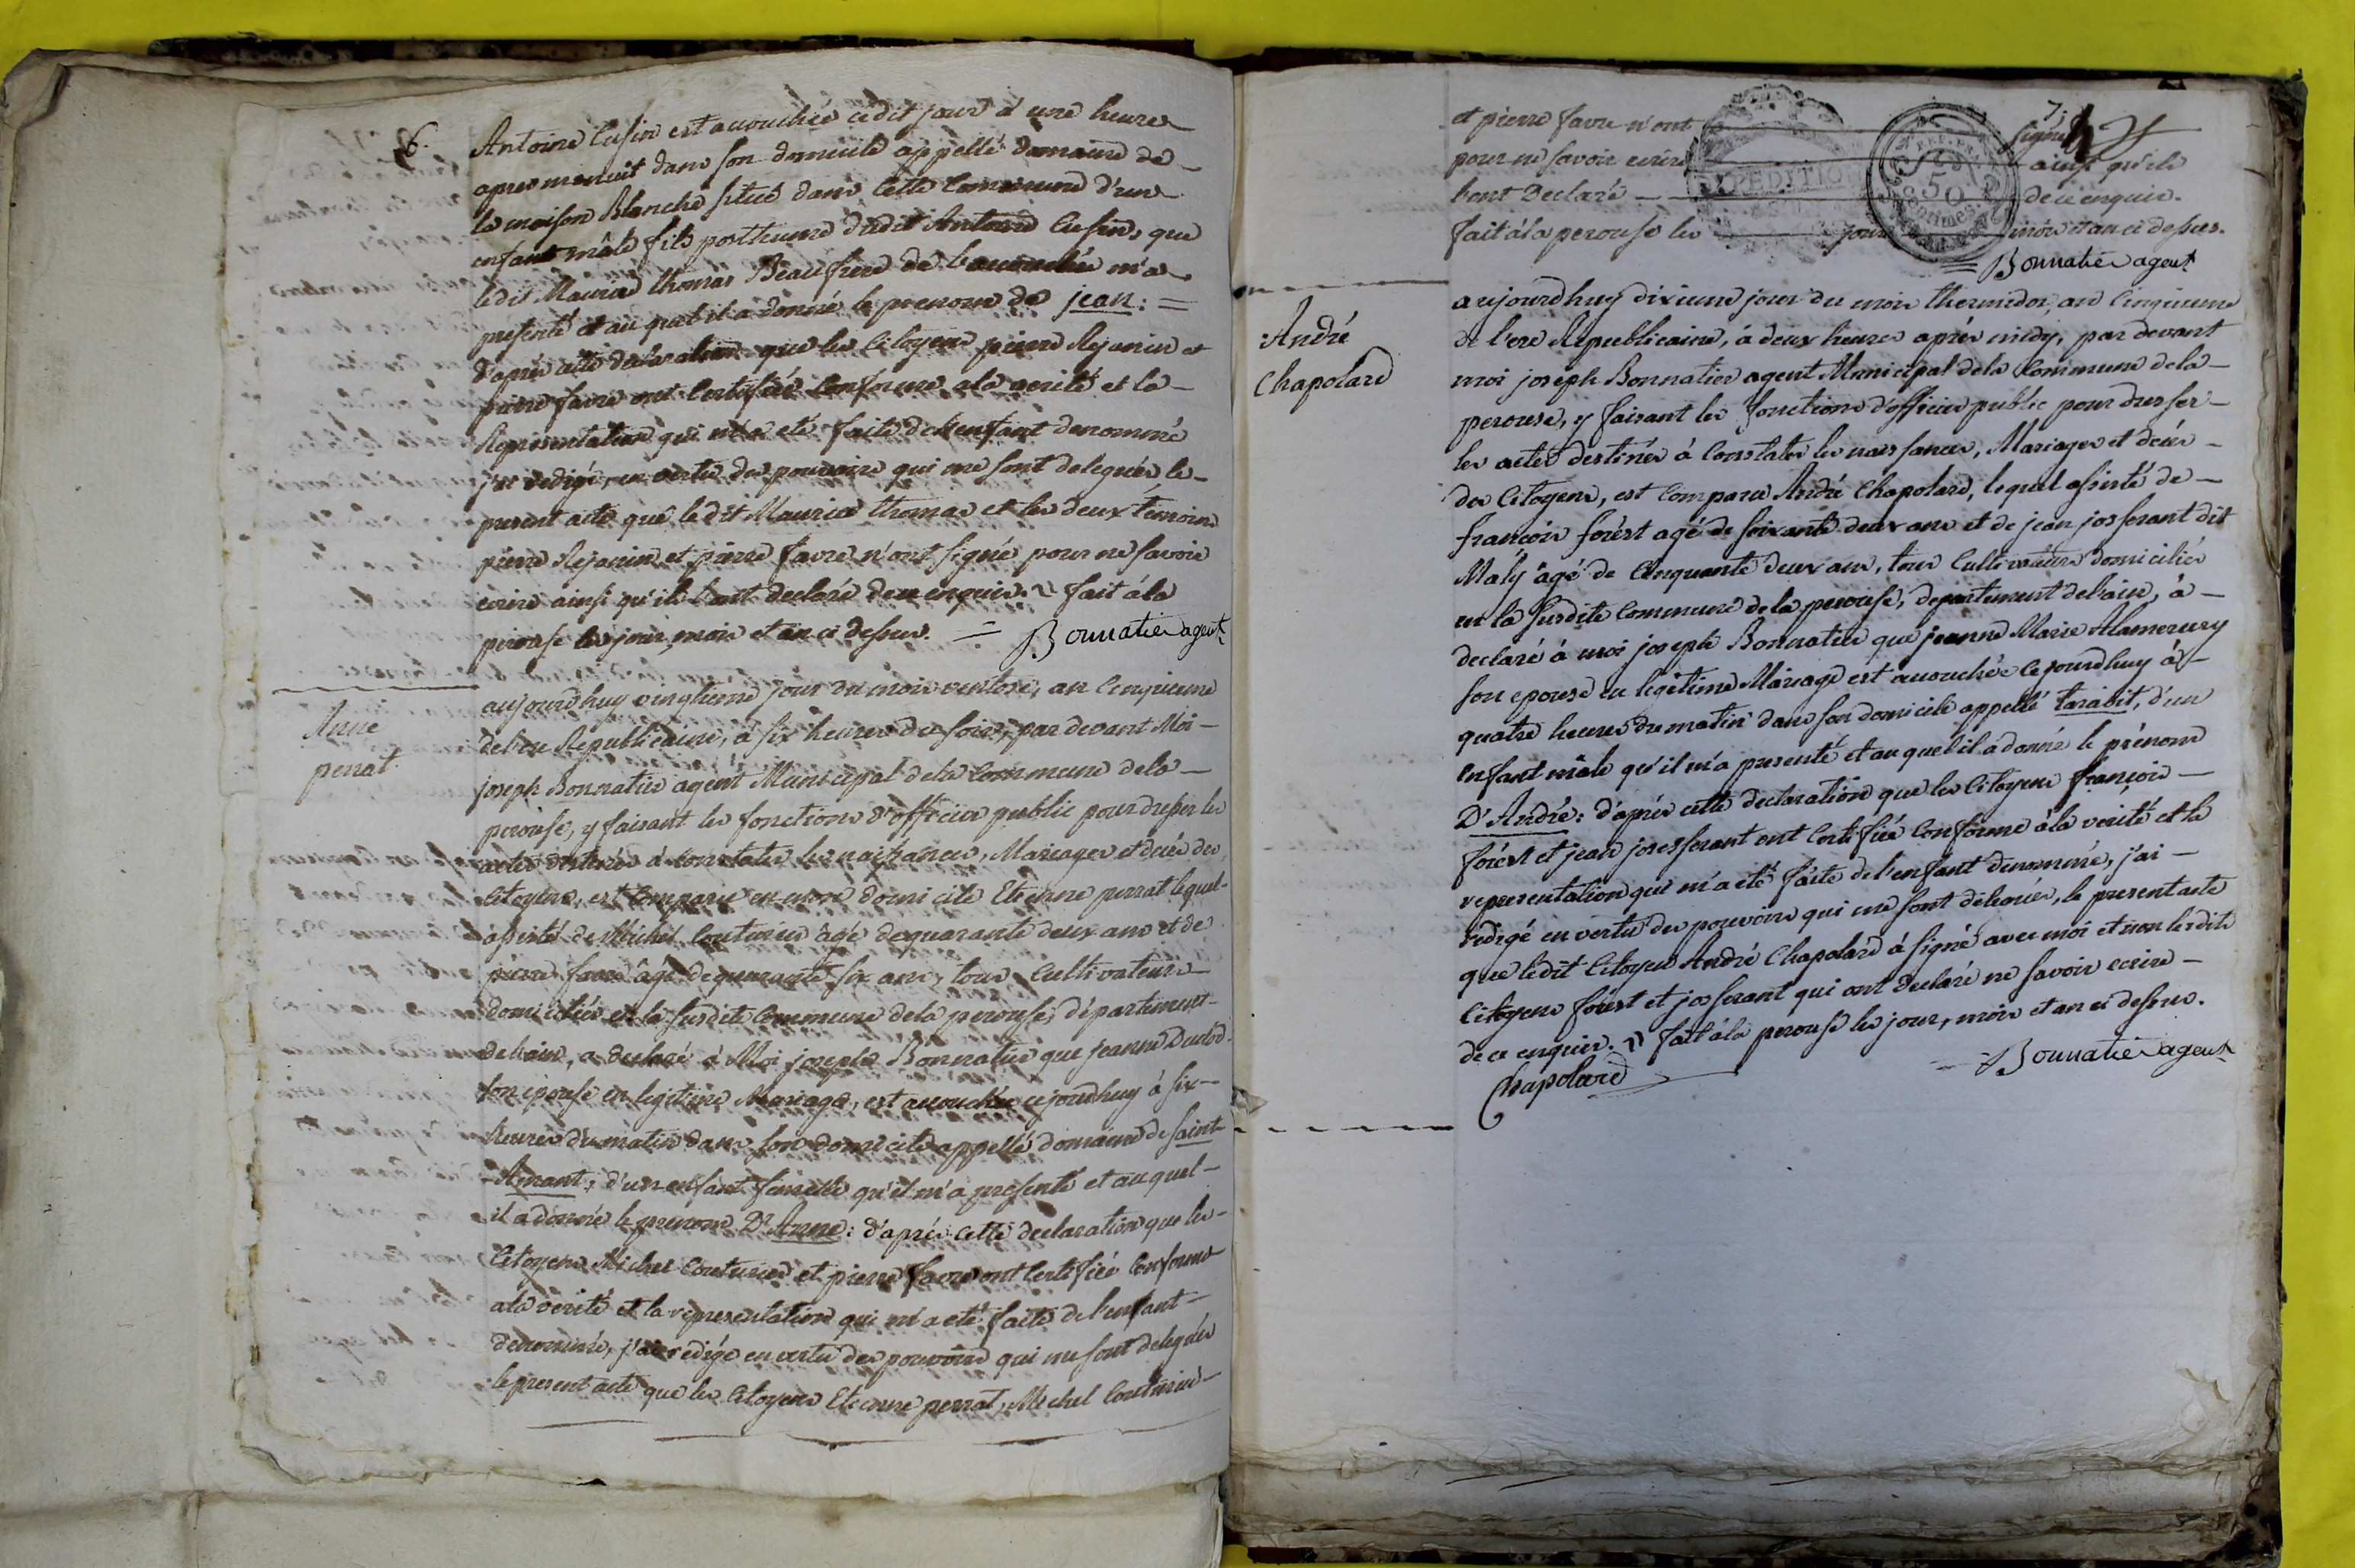 6.
Antoine Cusin est accouchée cedit jour à une heure
apres menuit dans son domicile appellé domaine de
la maison Blanche situé dans cette Commune d'un
enfant mâle fils posthume dudit Antoine Cusin, que
ledit Maurice thomas Beaufrere de l'accouchée m'a
presenté et au quel il a donné le prenom de jean : =
D'après cette declaration que les Citoyens pierre Rejanin et
pierre favre ont Certifiée Conforme a la verité et la
Representation qui m'a eté faite de l'enfant denommé
j'ai redigé, en vertu des pouvoirs qui me sont delegués le
present acte que ledit Maurice thomas et les deux temoins
pierre Rejanin et pierre favre n'ont signé pour ne savoir
ecrire ainsi qu'ils l'ont declaré de ce enquis. fait à la
perouse les jour, mois et an ci dessus. = Bonnatier agent
Anne
perrat
aujourdhuy vingtieme jour du mois ventose, an Cinquieme
de l'ere Republicaine, à six heures du soir, par devant Moi
joseph Bonnatier agent Municipal de la Commune de la
perouse, y faisant les fonctions d'officier public pour dresser les
actes destinés à Constater les naissances, Mariages et décés des
Citoyens, est Comparu en mon domicile Etienne perrat lequel
assisté de Michel Couturier agé de quarante deux ans et de
pierre favre âgé de quarante six ans, tous Cultivateurs
domiciliés en la susdite Commune de la perouse, département
de l'ain, a declaré à Moi joseph Bonnatier que jeanne
son epouse en legitime Mariage, est accouchée cejourdhuy à six
heures du matin dans son domicile appellé domaine de saint
Amant, d'un enfant femelle qu'il m'a presenté et au quel
il a donné le prénom D'Anne : d'après cette declaration que les
Citoyens Michel Couturier et pierre favre ont Certifiée Conforme
a la verité et la representation qui m'a eté faite de l'enfant
denommé, j'ai redigé en vertu des pouvoirs qui me sont delegués
le present acte que les Citoyens Etienne perrat, Michel Couturier
7.
et pierre favre n'ont signé
pour ne savoir ecrire ainsi qu'ils
l'ont Declaré de ce enquis.
fait à la perouse les jour mois et an ci dessus.
EXPEDITION
50
Centimes
Bonnatier agent
André
Chapolard
aujourdhuy dixieme jour du mois thermidor, an Cinquieme
de l'ere Republicaine, à deux heures après midy, par devant
moi joseph Bonnatier agent Municipal de la Commune de la
perouse, y faisant les fonctions d'officier public pour dresser
les actes destinés à Constater les naissances, Mariages et décés
des Citoyens, est Comparu André Chapolard, lequel assisté de
françois forést agé de soixante deux ans et de jean josserant dit
Maly âgé de Cinquante deux ans, tous Cultivateurs domiciliés
en la susdite Commune de la perouse, departement de l'ain, à
declaré à moi joseph Bonnatier que jeanne Marie Alamercery
son epouse en legitime Mariage est accouchée cejourdhuy à
quatre heures du matin dans son domicile appellé tarabit, d'un
Enfant mâle qu'il m'a presenté et au quel il a donné le prénom
D'André : d'après cette declaration que les Citoyens françois
forést et jean josserant ont Certifiée Conforme à la verité et la
representation qui m'a eté faite de l'enfant denommé, j'ai
redigé en vertu des pouvoirs qui me sont délegués, le present acte
que ledit Citoyen André Chapolard à signé avec moi et non lesdits
Citoyens forést et josserant qui ont declaré ne savoir ecrire
de ce enquis. fait à la perouse les jour, mois et an ci dessus.
Chapolard
Bonnatier agent